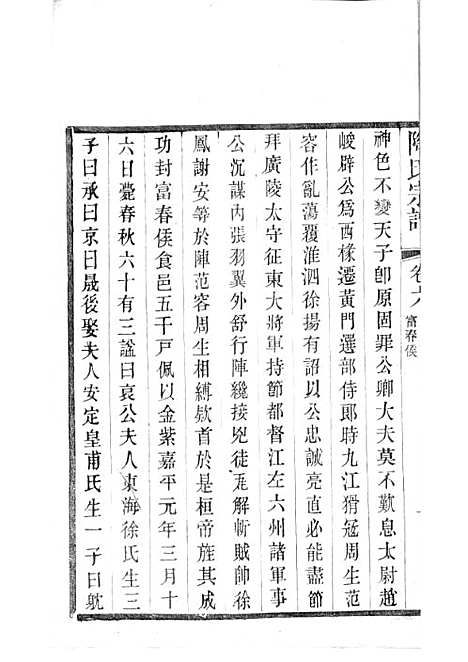 陶氏宗譜
卷六 富春侯
神色不變天子卽原固罪公卿大夫莫不歎息太尉趙
峻辟公爲西椽遷黃門選部侍郞時九江猾冦周生范
容作亂蕩覆淮泗徐揚有詔以公忠誠亮直必能盡節
拜廣陵太守征東大將軍持節都督江左六州諸軍事
公沉謀內張羽翼外舒行陣纔接兇徒瓦解斬賊帥徐
鳳謝安等於陣范容周生相縛欵首於是桓帝旌其成
功封富春侯食邑五千戸佩以金紫嘉平元年三月十
六日薨春秋六十有三謚曰哀公夫人東海徐氏生三
子曰承曰京曰晟後娶夫人安定皇甫氏生一子曰躭